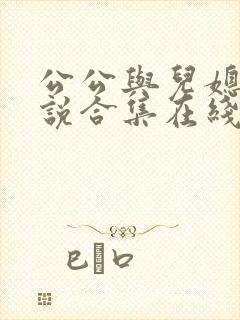 公公與兒媳
說合集在綫